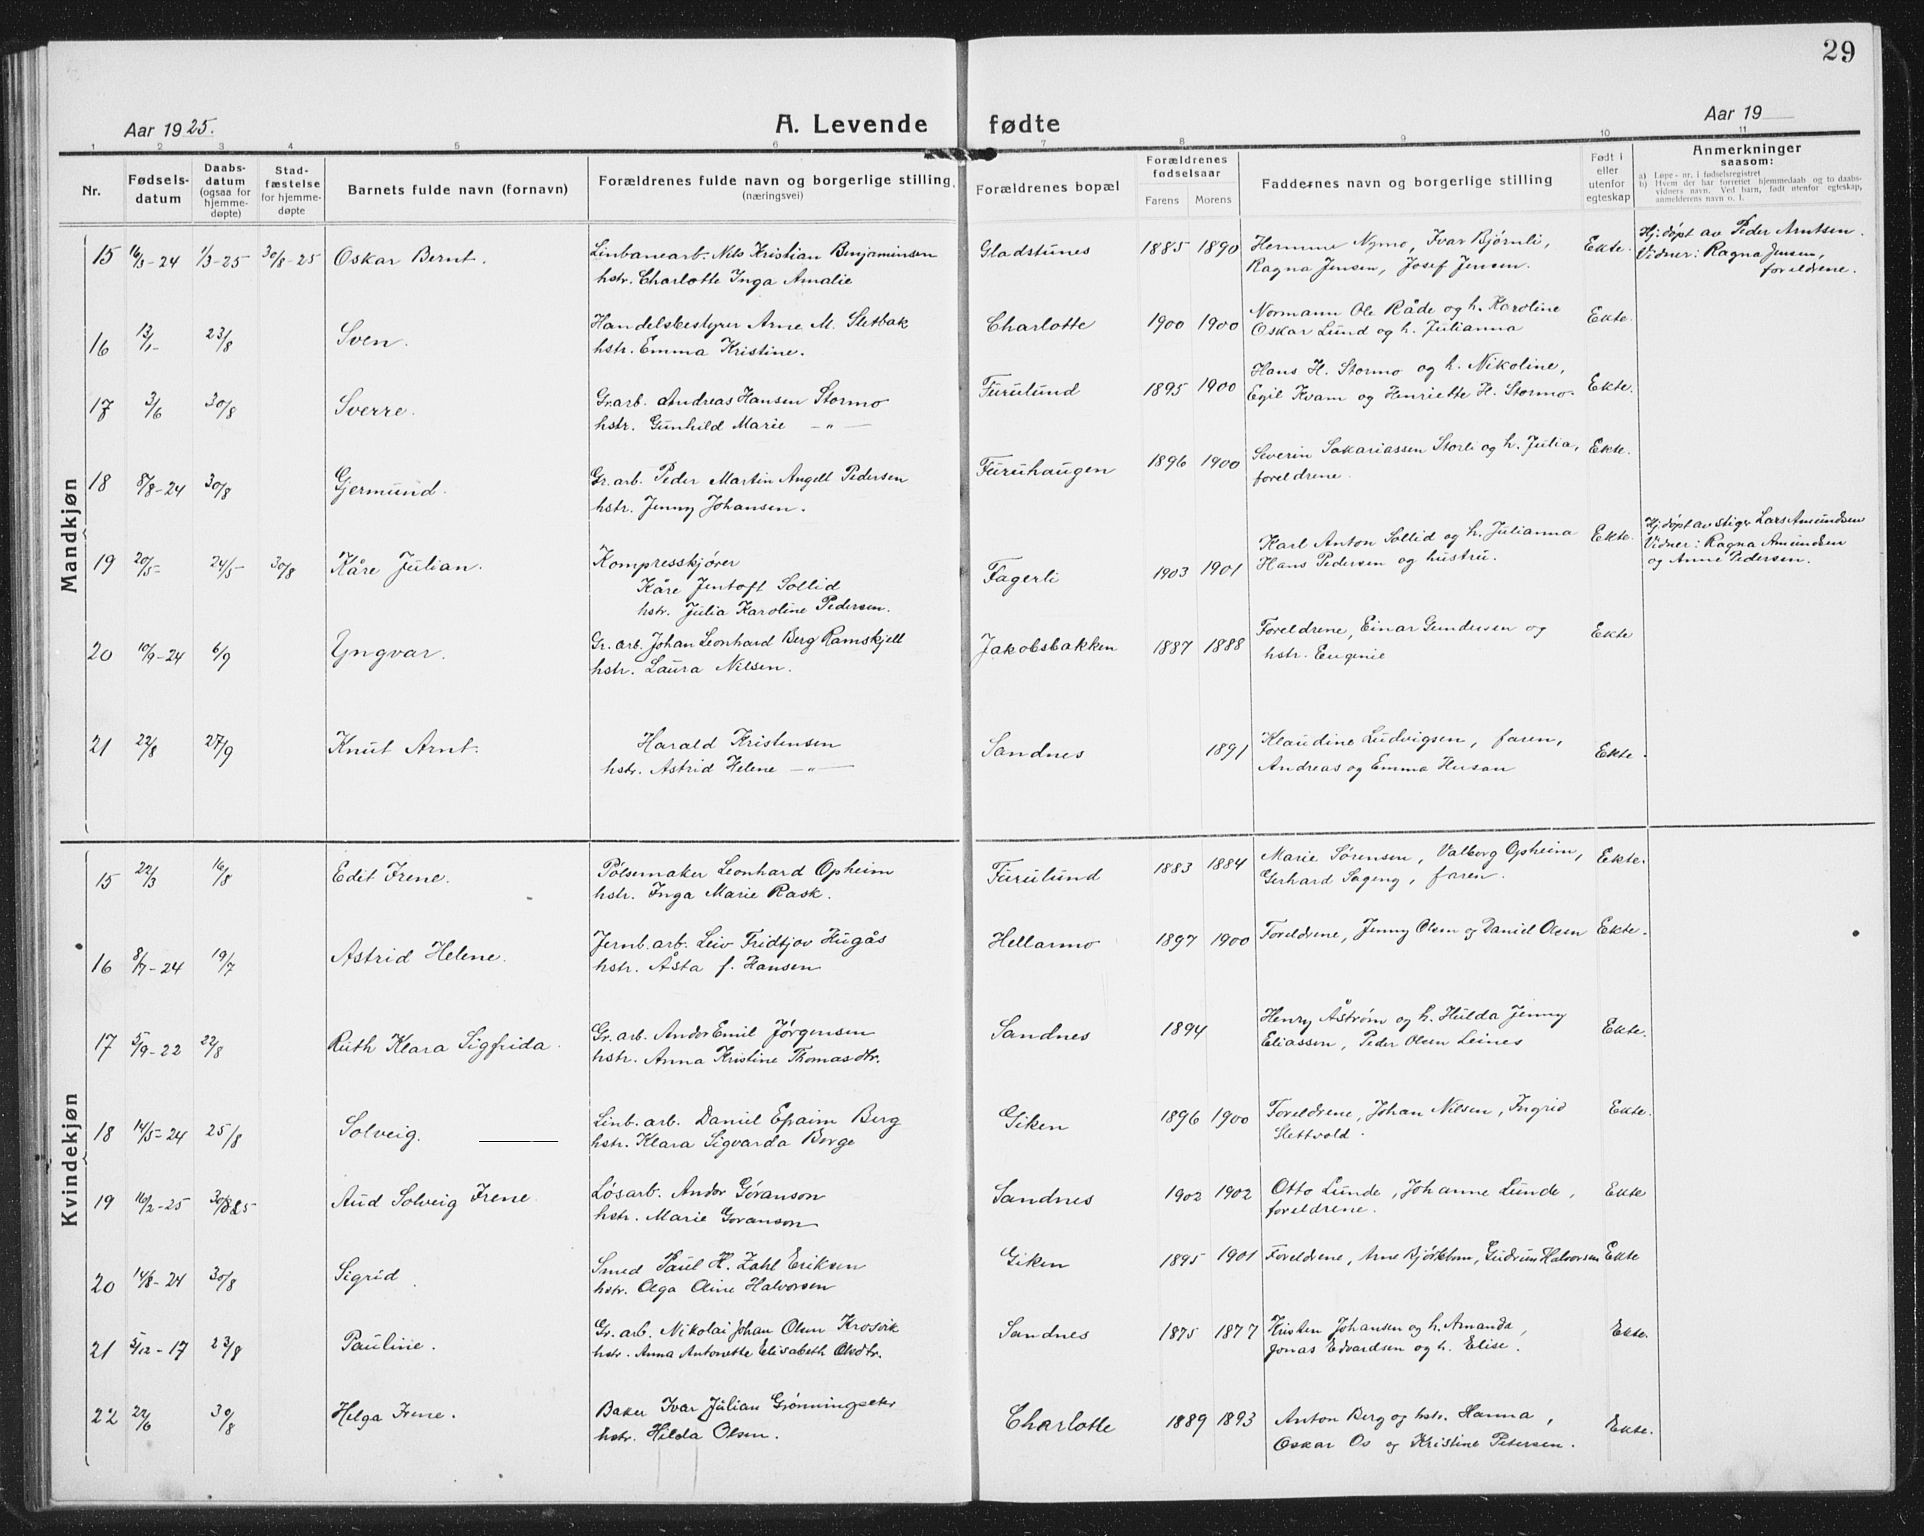 29
Aar 1925.
A. Levende fødte
Aar 19
1 2 3 4 5 6 7 8 9 10 11
Nr.
Fødsels-
datum
Daabs-
datum
(ogsaa for
hjemme-
døpte)
Stad-
fæstelse
for hjemme-
døpte
Barnets fulde navn (fornavn)
Forældrenes fulde navn og borgerlige stilling
(næringsvei)
Forældrenes bopæl
Forældrenes
fødselsaar
Farens Morens
Faddernes navn og borgerlige stilling
Født i
eller
utenfor
egteskap
Anmerkninger
saasom:
a) Løpe-nr. i fødselsregistret
b) Hvem der har forrettet hjemmedaab og to daabs-
vidners navn. Ved barn, født utenfor egteskap,
anmelderens navn o. l.
Mandkjøn
15 16/3-24 1/3-25 30/8-25 Oskar Bernt. Linbanearb. Nils Kristian Benjaminsen Gladstunes 1885 1890 Hemme Nymo, Ivar Bjørnli, Ekte. Hj. døpt av Peder Arntsen.
hstr. Charlotte Inga Amalie Ragna Jensen, Josef Jensen. Vidner: Ragna Jensen,
foreldrene.
16 13/1- 23/8 Sven. Handelsbestyrer Arne M. Sletbak Charlotte 1900 1900 Normann Ole Råde og h. Karoline Ekte.
hstr. Emma Kristine. Oskar Lund og h. Julianna
17 3/6 30/8 Sverre. Gr.arb. Andreas Hansen Stormo Furulund 1895 1900 Hans H. Stormo og h. Nikoline, Ekte.
hstr. Gunhild Marie —"— Egil Kvam og Henriette H. Stormo.
18 8/8-24 30/8 Gjermund. Gr. arb. Peder Martin Angell Pedersen Furuhaugen 1896 1900 Severin Sakariassen Storli og h. Julia, Ekte.
hstr. Jenny Johansen. foreldrene.
19 20/5- 24/5- 30/8 Kåre Julian. Kompresskjører Fagerli 1903 1901 Karl Anton Sollid og h. Julianna Ekte. Hj. døpt av stiger Lars Amundsen
Kåre Jentoft Sollid Hans Pedersen og hustru. Vidner: Ragna Amundsen
hstr. Julia Karoline Pedersen. og Anne Pedersen.
20 10/9-24 6/9 Yngvar. Gr. arb. Johan Leonhard Berg Ramskjell Jakobsbakken 1887 1888 Foreldrene, Einar Gundersen og Ekte
hstr. Laura Nilsen. hstr. Eugenie
21 22/8 27/9 Knut Arnt. Harald Kristensen Sandnes 1891 Klaudine Ludvigsen, faren, Ekte.
hstr. Astrid Helene —"— Andreas og Emma Husan
Kvindekjøn
15 22/3 16/8 Edit Irene. Pølsemaker Leonhard Opheim Furulund 1883 1884 Marie Sørensen, Valborg Opheim, Eekte.
hstr. Inga Marie Rask. Gerhard Sageng, faren.
16 8/7-24 19/7 Astrid Helene. Jernb.arb. Leiv Fridtjov Hugås Hellarmo 1897 1900 Foreldrene, Jenny Olsen og Daniel Olsen Ekte.
hstr. Åsta f. Hansen
17 5/9-22 22/8 Ruth Klara Sigfrida. Gr. arb. Andor Emil Jørgensen Sandnes 1894 Henry Åstrøm og h. Hulda Jenny Ekte.
hstr. Anna Kristine Thomasdtr. Eliassen, Peder Olsen Leines
18 14/5-24 25/8 Solveig. Linb. arb. Daniel Epaim Berg Giken 1896 1900 Foreldrene, Johan Nilsen, Ingrid Ekte.
hstr. Klara Sigvarda Borge Slettvold.
19 16/2-25 30/8 25 Aud Solveig Irene. Løsarb. Andor Gøranson Sandnes 1902 1902 Otto Lunde, Johanne Lunde, Ekte
hstr. Marie Goranson foreldrene.
20 14/8-24 30/8 Sigrid. Smed Paul H. Zahl Eriksen Giken 1895 1901 Foreldrene, Arne Bjørkbom, Gudrun Halvorsen Ekte
hstr. Olga Oline Halvorsen
21 5/12-17 23/8 Pauline. Gr. arb. Nikolai Johan Olsen Krosvik Sandnes 1875 1877 Kristen Johansen og h. Amanda, Ekte.
hstr. Anna Antonette Elisabeth Olsdtr. Jonas Edvardsen og h. Elise.
22 22/6 30/8 Helga Irene. Baker Ivar Julian Grønningseter Charlotte 1889 1893 Anton Berg og hstr. Hanna, Ekte.
hstr. Hilda Olsen. Oskar Os og Kristine Petersen.